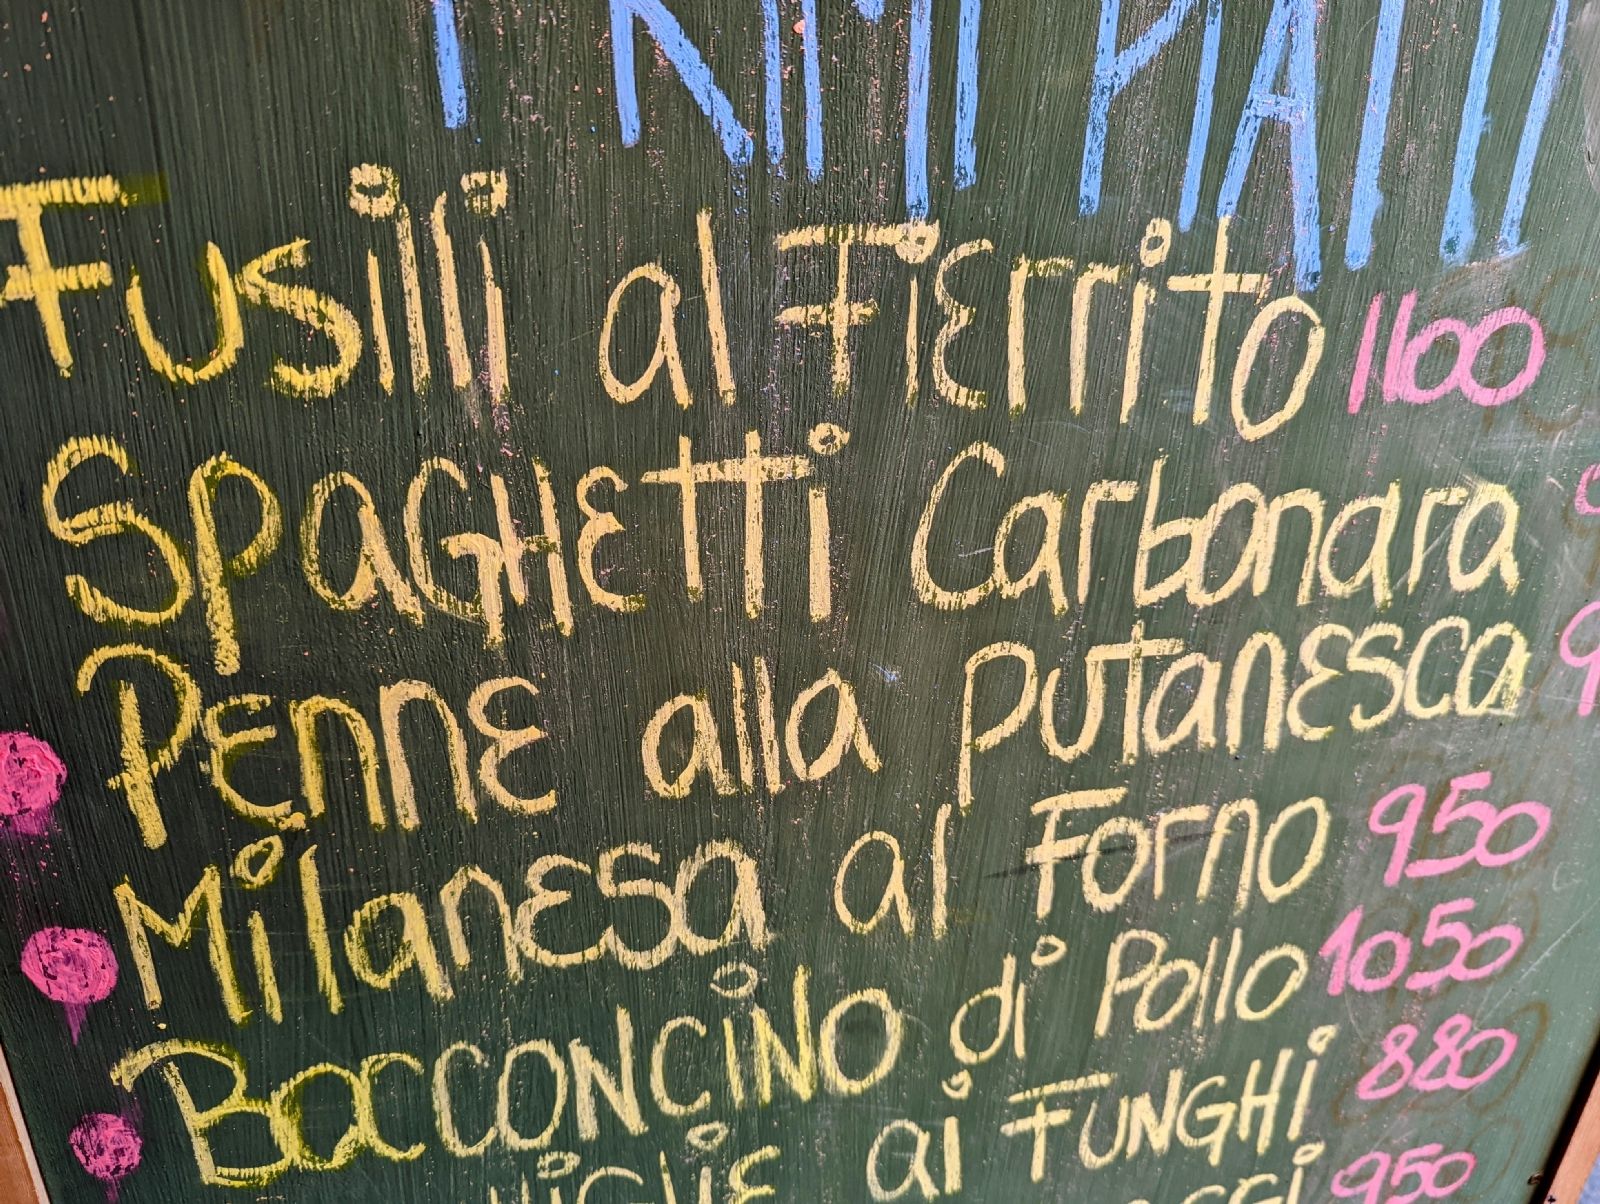 PRIMI PIATTI
Fusilli al Fierrito 1100
Spaghetti Carbonara
Penne alla putanesca
Milanesa al Forno 950
Bocconcino di Pollo 1050
ai Funghi 880
950